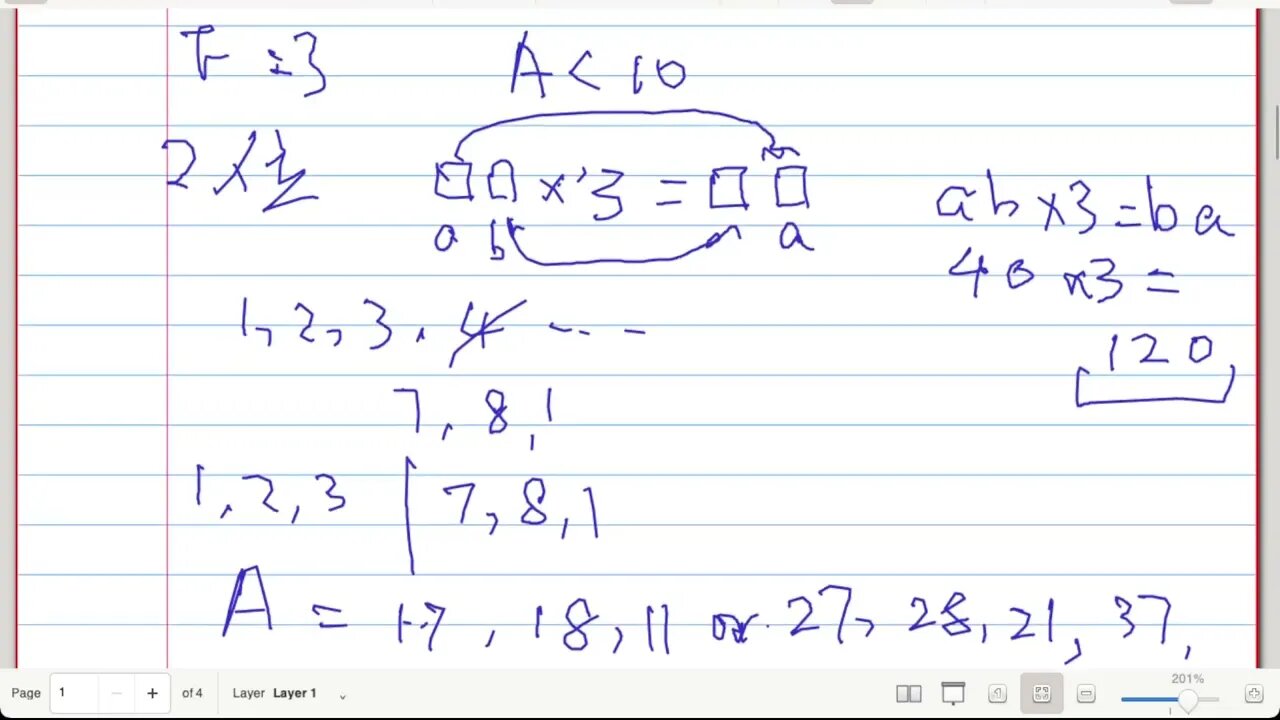 r = 3
A < 10
2 位
□□ × 3 = □□
a b a
ab × 3 = ba
40 × 3 =
120
1, 2, 3, 4 - - - -
7, 8, 1
1, 2, 3 | 7, 8, 1
A = 17, 18, 11 or 27, 28, 21, 37,
Page 1 − + of 4 Layer Layer 1 201%